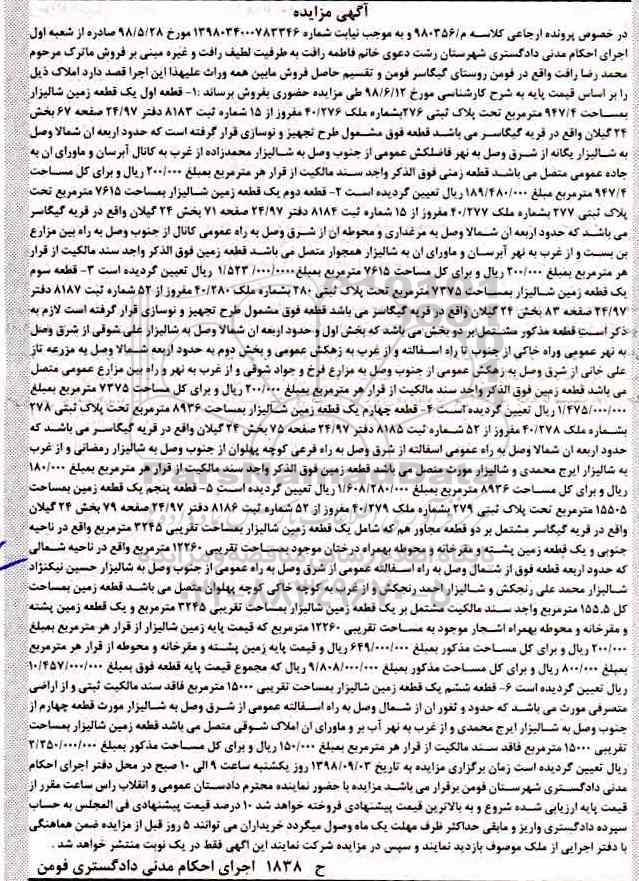 آگهی مزایده
در خصوص پرونده ارجاعی کلاسه م/۹۸۰۳۵۶ و به موجب نیابت شماره ۱۳۹۸۰۳۴۰۰۰۷۸۳۳۴۶ مورخ ۹۸/۵/۲۸ صادره از شعبه اول
اجرای احکام مدنی دادگستری شهرستان رشت دعوی خانم فاطمه رافت به طرفیت لطیف رافت و غیره مبنی بر فروش ماترک مرحوم
محمد رضا رافت واقع در فومن روستای گیگاسر فومن و تقسیم حاصل فروش مابین همه وراث علیهذا این اجرا قصد دارد املاک ذیل
را بر اساس قیمت پایه به شرح کارشناسی مورخ ۹۸/۶/۱۲ طی مزایده حضوری بفروش برساند :۱- قطعه اول یک قطعه زمین شالیزار
بمساحت ۹۴۷/۴ مترمربع تحت پلاک ثبتی ۲۷۶بشماره ملک ۴۰/۲۷۶ مفروز از ۱۵ شماره ثبت ۸۱۸۳ دفتر ۲۴/۹۷ صفحه ۶۷ بخش
۲۴ گیلان واقع در قریه گیگاسر می باشد قطعه فوق مشمول طرح تجهیز و نوسازی قرار گرفته است که حدود اربعه ان شمالا وصل
به شالیزار یگانه از شرق وصل به نهر فاضلکش عمومی از جنوب وصل به شالیزار محمدزاده از غرب به کانال آبرسان و ماورای ان به
جاده عمومی متصل می باشد قطعه زمنی فوق الذکر واجد سند مالکیت از قرار هر مترمربع بمبلغ ۲۰۰/۰۰۰ ریال و برای کل مساحت
۹۴۷/۴ مترمربع مبلغ ۱۸۹/۴۸۰/۰۰۰ ریال تعیین گردیده است ۲- قطعه دوم یک قطعه زمین شالیزار بمساحت ۷۶۱۵ مترمربع تحت
پلاک ثبتی ۲۷۷ بشماره ملک ۴۰/۲۷۷ مفروز از ۱۵ شماره ثبت ۸۱۸۴ دفتر ۲۴/۹۷ صفحه ۷۱ بخش ۲۴ گیلان واقع در قریه گیگاسر
می باشد که حدود اربعه ان شمالا وصل به مرغداری و محوطه ان از شرق وصل به راه عمومی کانال از جنوب وصل به راه بین مزارع
بن بست و از غرب به نهر آبرسان و ماورای ان به شالیزار همجوار متصل می باشد قطعه زمین فوق الذکر واجد سند مالکیت از قرار
هر مترمربع بمبلغ ۲۰۰/۰۰۰ ریال و برای کل مساحت ۷۶۱۵ مترمربع بمبلغ۱/۵۲۳/۰۰۰/۰۰۰۰ ریال تعیین گردیده است ۳- قطعه سوم
یک قطعه زمین شالیزار بمساحت ۷۳۷۵ مترمربع تحت پلاک ثبتی ۲۸۰ بشماره ملک ۴۰/۲۸۰ مفروز از ۵۲ شماره ثبت ۸۱۸۷ دفتر
۲۴/۹۷ صفحه ۸۳ بخش ۲۴ گیلان واقع در قریه گیگاسر می باشد قطعه فوق مشمول طرح تجهیز و نوسازی قرار گرفته است لازم به
ذکر است قطعه مذکور مشتمل بر دو بخش می باشد که بخش اول و حدود اربعه ان شمالا وصل به شالیزار علی شوقی از شرق وصل
به نهر عمومی وراه خاکی از جنوب تا راه اسفالته و از غرب به زهکش عمومی و بخش دوم به حدود اربعه شمالا وصل به مزرعه تاز
علی خانی از شرق وصل به زهکش عمومی از جنوب وصل به مزارع فرخ و جواد شوقی و از غرب به نهر و راه بین مزارع عمومی متصل
می باشد قطعه زمین فوق الذکر واجد سند مالکیت از قرار هر مترمربع بمبلغ ۲۰۰/۰۰۰ ریال و برای کل مساحت ۷۳۷۵ مترمربع بمبلغ
۱/۴۷۵/۰۰۰/۰۰۰ ریال تعیین گردیده است ۴- قطعه چهارم یک قطعه زمین شالیزار بمساحت ۸۹۳۶ مترمربع تحت پلاک ثبتی ۲۷۸
بشماره ملک ۴۰/۲۷۸ مفروز از ۵۲ شماره ثبت ۸۱۸۵ دفتر ۲۴/۹۷ صفحه ۷۵ بخش ۲۴ گیلان واقع در قریه گیگاسر می باشد که
حدود اربعه ان شمالا وصل به راه عمومی اسفالته از شرق وصل به راه فرعی کوچه پهلوان از جنوب وصل به شالیزار رمضانی و از غرب
به شالیزار ایرج محمدی و شالیزار مورث متصل می باشد قطعه زمین فوق الذکر واجد سند مالکیت از قرار هر مترمربع بمبلغ ۱۸۰/۰۰۰
ریال و برای کل مساحت ۸۹۳۶ مترمربع بمبلغ ۱/۶۰۸/۲۸۰/۰۰۰ ریال تعیین گردیده است ۵- قطعه پنجم یک قطعه زمین بمساحت
۱۵۵۰۵ مترمربع تحت پلاک ثبتی ۲۷۹ بشماره ملک ۴۰/۲۷۹ مفروز از ۵۲ شماره ثبت ۸۱۸۶ دفتر ۲۴/۹۷ صفحه ۷۹ بخش ۲۴ گیلان
واقع در قریه گیگاسر مشتمل بر دو قطعه مجاور هم که شامل یک قطعه زمین شالیزار بمساحت تقریبی ۳۲۴۵ مترمربع واقع در ناحیه
جنوبی و یک قطعه زمین پشته و مقرخانه و محوطه بهمراه درختان موجود بمساحت تقریبی ۱۲۲۶۰ مترمربع واقع در ناحیه شمالی
که حدود اربعه قطعه فوق از شمال وصل به راه اسفالته عمومی از شرق وصل به راه عمومی از جنوب وصل به شالیزار حسین نیکنژاد
شالیزار محمد علی رنجکش و شالیزار احمد رنجکش و از غرب به کوچه خاکی کوچه پهلوان متصل می باشد قطعه زمین بمساحت
کل ۱۵۵.۵ مترمربع واجد سند مالکیت مشتمل بر یک قطعه زمین شالیزار بمساحت تقریبی ۳۲۴۵ مترمربع و یک قطعه زمین پشته
و مقرخانه و محوطه بهمراه اشجار موجود به مساحت تقریبی ۱۲۲۶۰ مترمربع که قیمت پایه زمین شالیزار از قرار هر مترمربع بمبلغ
۲۰۰/۰۰۰ ریال و برای کل مساحت مذکور بمبلغ ۶۴۹/۰۰۰/۰۰۰ ریال و قیمت پایه زمین پشته و مقرخانه و محوطه از قرار هر مترمربع
بمبلغ ۸۰۰/۰۰۰ ریال و برای کل مساحت مذکور بمبلغ ۹/۸۰۸/۰۰۰/۰۰۰ ریال که مجموع قیمت پایه قطعه فوق بمبلغ ۱۰/۴۵۷/۰۰۰/۰۰۰
ریال تعیین گردیده است ۶- قطعه ششم یک قطعه زمین شالیزار بمساحت تقریبی ۱۵۰۰۰ مترمربع فاقد سند مالکیت ثبتی و از اراضی
متصرفی مورث می باشد که حدود و ثغور ان از شمال وصل به راه اسفالته عمومی از شرق وصل به شالیزار مورث قطعه چهارم از
جنوب وصل به شالیزار ایرج محمدی و از غرب به نهر آب بر و ماورای ان املاک شوقی متصل می باشد قطعه زمین شالیزار بمساحت
تقریبی ۱۵۰۰۰ مترمربع فاقد سند مالکیت از قرار هر مترمربع بمبلغ ۱۵۰/۰۰۰ ریال و برای کل مساحت مذکور بمبلغ ۲/۲۵۰/۰۰۰/۰۰۰
ریال تعیین گردیده است زمان برگزاری مزایده به تاریخ ۱۳۹۸/۰۹/۰۳ روز یکشنبه ساعت ۹ الی ۱۰ صبح در محل دفتر اجرای احکام
مدنی دادگستری شهرستان فومن برقرار می باشد مزایده با حضور نماینده محترم دادستان عمومی و انقلاب راس ساعت مقرر از
قیمت پایه ارزیابی شده شروع و به بالاترین قیمت پیشنهادی فروخته خواهد شد ۱۰ درصد قیمت پیشنهادی فی المجلس به حساب
سپرده دادگستری واریز و مابقی حداکثر ظرف مهلت یک ماه وصول میگردد خریداران می توانند ۵ روز قبل از مزایده ضمن هماهنگی
با دفتر اجرایی از ملک موصوف بازدید نمایند و سپس در مزایده شرکت نمایند این آگهی فقط در یک نوبت منتشر خواهد شد .
ح ۱۸۳۸ اجرای احکام مدنی دادگستری فومن